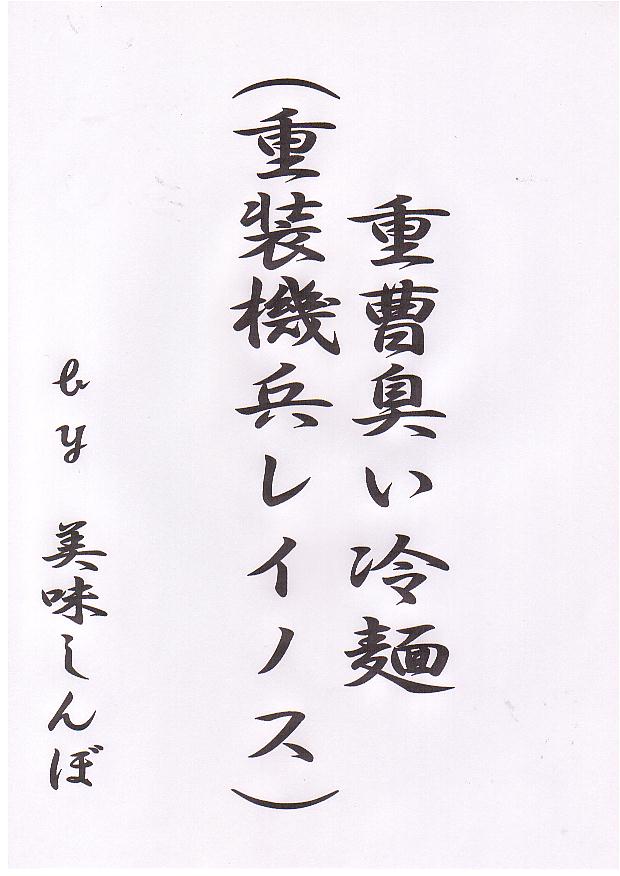 重曹臭い冷麺
（重装機兵レイノス）
by 美味しんぼ